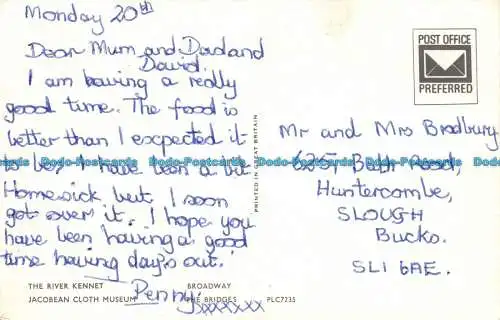 Monday 20th
Dear Mum and Dad and
David.
I am having a really
good time. The food is
better than I expected it
to be. I have been a bit
Homesick but I soon
got over it. I hope you
have been having a good
time having day's out.
Penny xxxxxxx
THE RIVER KENNET
JACOBEAN CLOTH MUSEUM
BROADWAY
THE BRIDGES
PLC7235
PRINTED IN GREAT BRITAIN
POST OFFICE
PREFERRED
Mr and Mrs Bradbury
Bath Road,
Huntercombe,
SLOUGH
Bucks.
SL1 6AE.
Dodo-Postcards Dodo-Postcards Dodo-Postcards Dodo-Postcards Dodo-Postcards